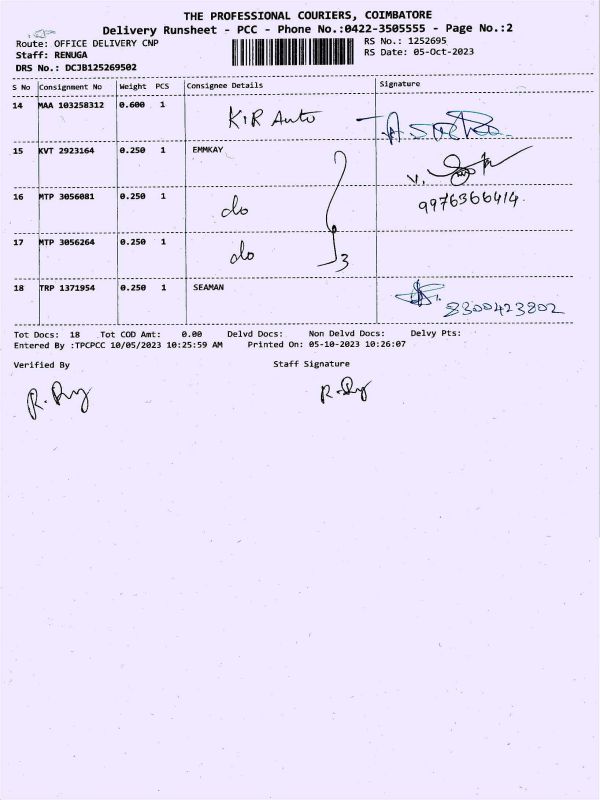 THE PROFESSIONAL COURIERS, COIMBATORE
Delivery Runsheet - PCC - Phone No.:0422-3505555 - Page No.:2
Route: OFFICE DELIVERY CNP
RS No.: 1252695
Staff: RENUGA
RS Date: 05-Oct-2023
DRS No.: DCJB125269502
S No Consignment No Weight PCS Consignee Details Signature
14 MAA 103258312 0.600 1 KIR Auto
15 KVT 2923164 0.250 1 EMMKAY
16 MTP 3056081 0.250 1 do 9976366414
17 MTP 3056264 0.250 1 do 3
18 TRP 1371954 0.250 1 SEAMAN 8300423802
Tot Docs: 18 Tot COD Amt: 0.00 Delvd Docs: Non Delvd Docs: Delvy Pts:
Entered By :TPCPCC 10/05/2023 10:25:59 AM Printed On: 05-10-2023 10:26:07
Verified By Staff Signature